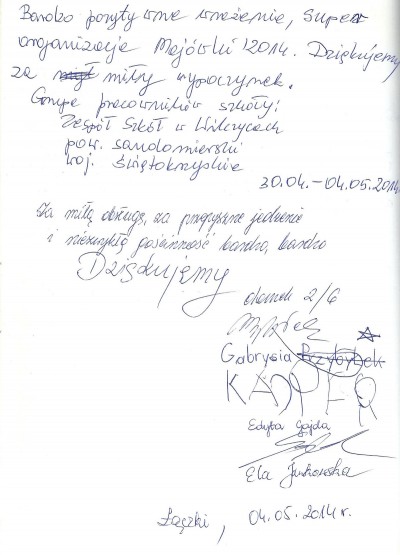 Bardzo pozytywne wrażenie, super
organizacja Majówki 2014. Dziękujemy
za miły wypoczynek.
Grupa pracowników szkoły:
Zespół Szkół w Wilczycach
pow. sandomierski
woj. świętokrzyskie
30.04.-04.05.2014r.
Za miłą obsługę, za przepyszne jedzenie
i niezwykłą gościnność bardzo, bardzo
Dziękujemy
domek 2/6
Gabrysia
KACPER
Edyta Gajda
Ela
Łączki, 04.05.2014r.